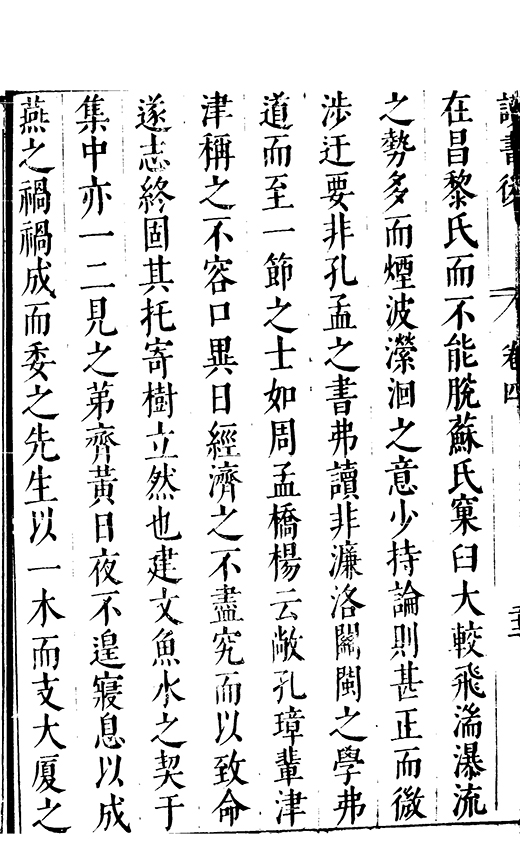 讀書後 卷四
在昌黎氏而不能脫蘇氏窠臼大較飛湍瀑流
之勢多而煙波瀠洄之意少持論則甚正而微
涉迂要非孔孟之書弗讀非濂洛關閩之學弗
道而至一節之士如周孟橋楊云敞孔璋輩津
津稱之不容口異日經濟之不盡究而以致命
遂志終固其托寄樹立然也建文魚水之契于
集中亦一二見之第齊黃日夜不遑寢息以成
燕之禍禍成而委之先生以一木而支大廈之